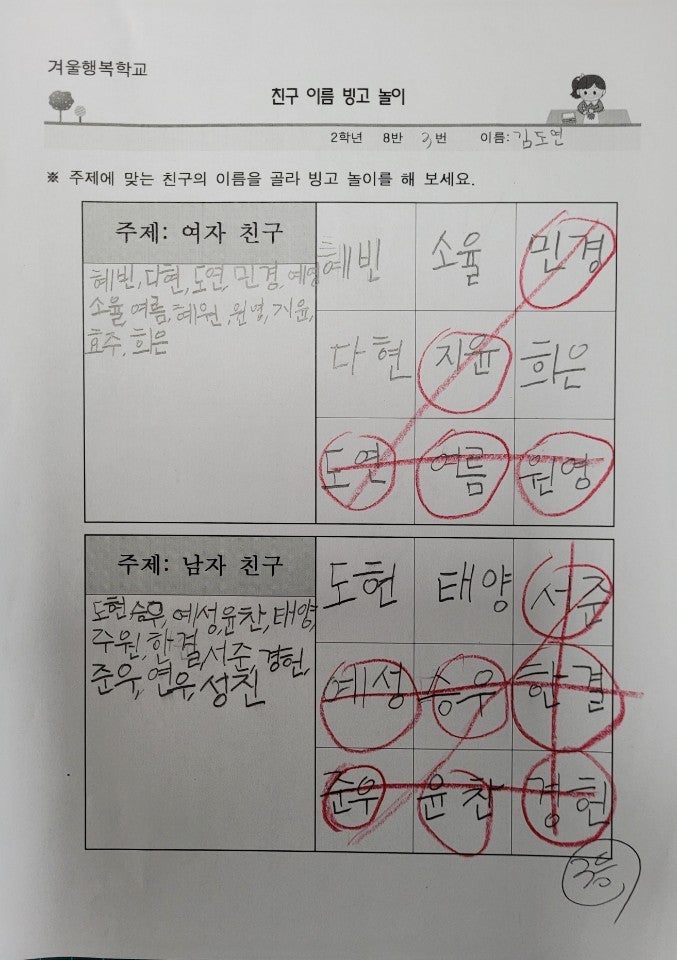 겨울행복학교
친구 이름 빙고 놀이
2학년 8반 3번 이름: 김도연
※ 주제에 맞는 친구의 이름을 골라 빙고 놀이를 해 보세요.
주제: 여자 친구
혜빈, 다현, 도연, 민경, 예영
소율, 여름, 혜원, 원영, 지윤,
효주, 희은
혜빈 소율 민경
다현 지윤 희은
도연 여름 원영
주제: 남자 친구
도현, 승우, 예성, 윤찬, 태양,
주원, 한결, 서준, 경헌,
준우, 연우, 성진
도현 태양 서준
예성 승우 한결
준우 윤찬 경헌
3등